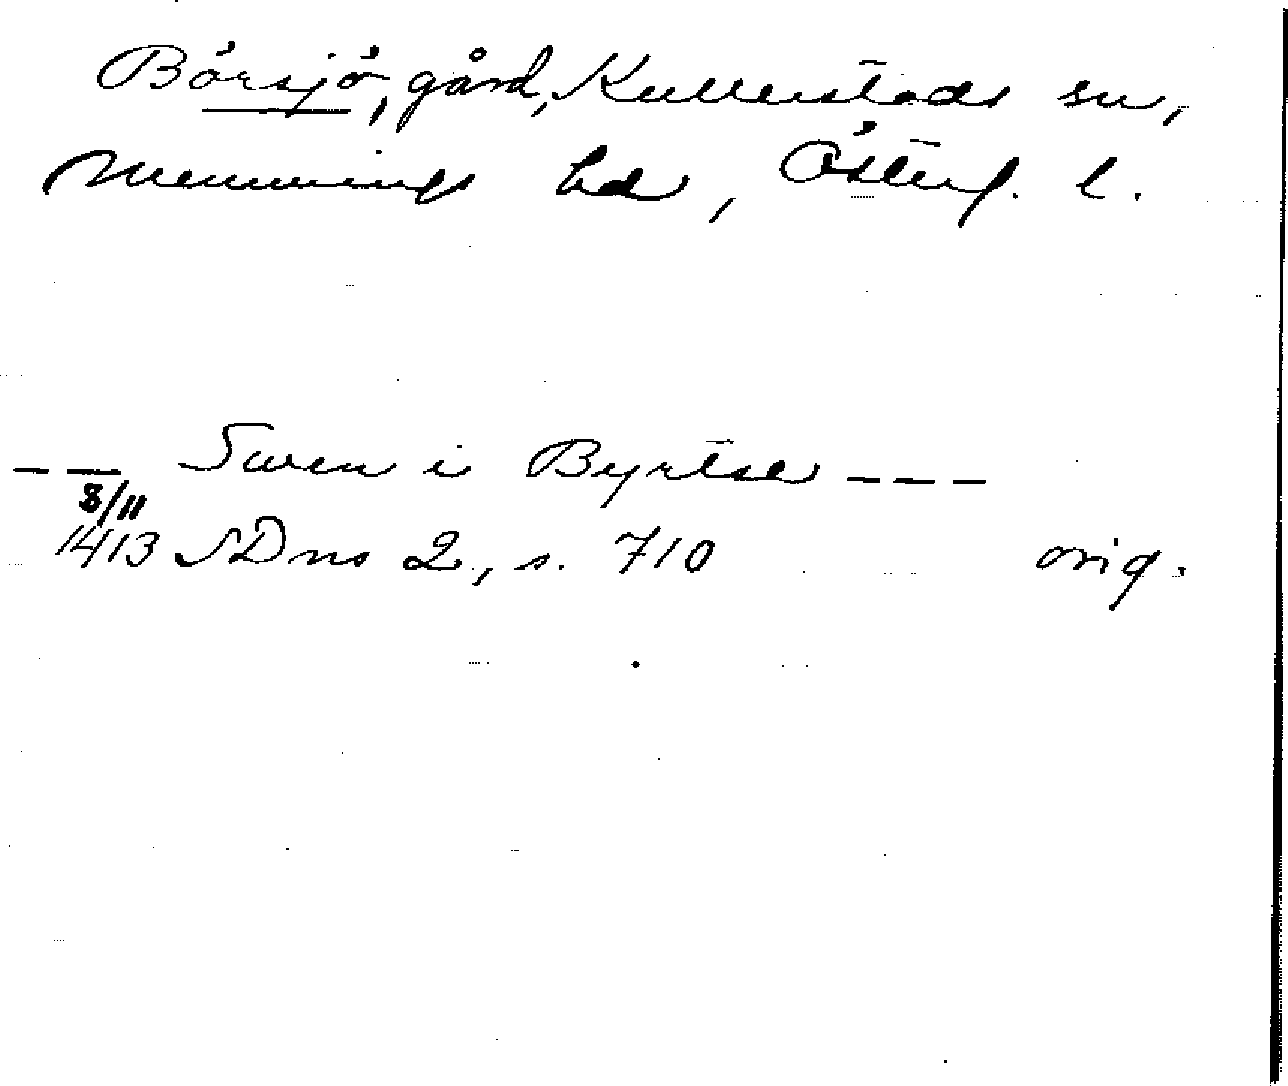 Börsjö, gård, Kullerstads sn,
Memmings hd, Österg. l.
-- Swen i Byrtse ---
8/11
1413 SDns 2, s. 710 orig.